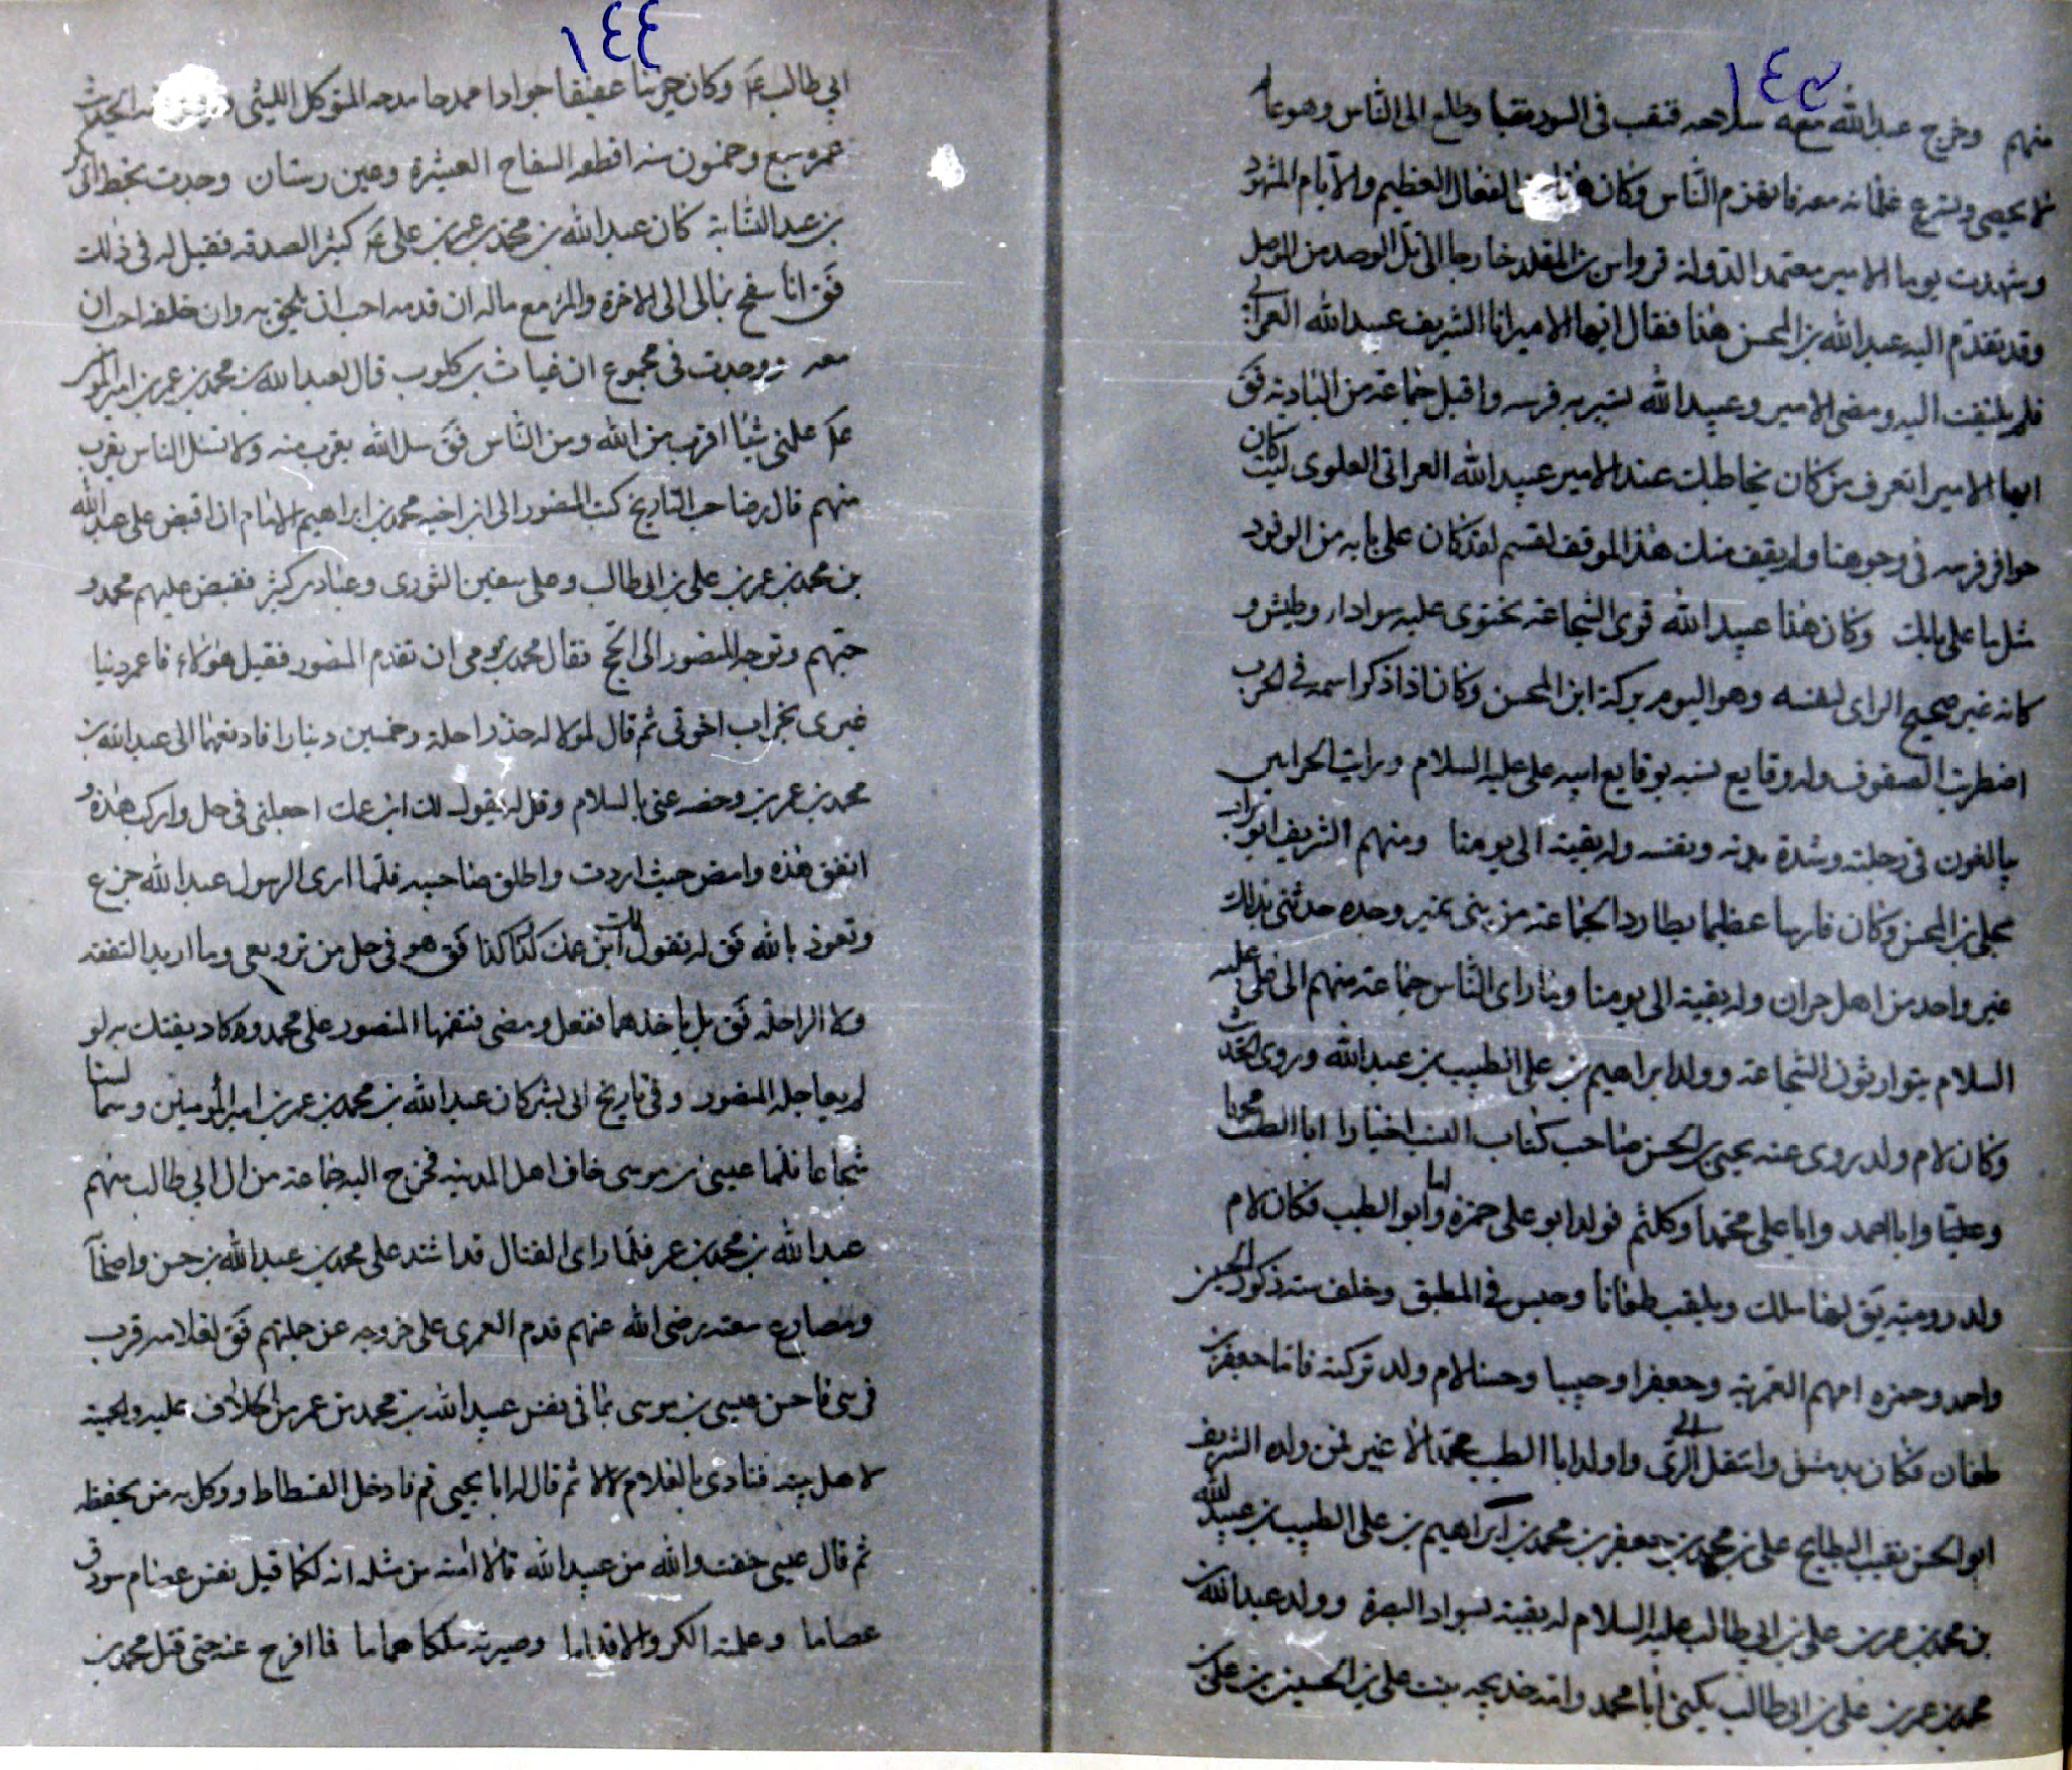 ١٤٣
منهم وخرج عبدالله معه سلاحه فنقب في السور نقبا وطلع الى الناس وهوعا
لا يحصى وتسرع غلمانه معه فانهزم الناس وكان هذا الفعال العظيم والايام المشهود
وشهدت يوما الامير معتمد الدولة قرواس بن المقلد خارجا الى تل الوصد من الموصل
وقد تقدم اليه عبدالله بن المحسن هذا فقال ايها الامير انا الشريف عبيدالله العراقي
فلم يلتفت اليه ومضى الامير وعبيدالله يسير به فرسه واقبل جماعة من البادية فق
ايها الامير اتعرف من كان يخاطبك عند الامير عبيدالله العراقي العلوى ليت كان
حوافر فرسه في وجوهنا ولم يقف منك هذا الموقف لقسم لقد كان على بابه من الوفود
مثل ما على بابك وكان هذا عبيدالله قوى الشجاعة تحتوى عليه سوادار وطيش و
كانه غير صحيح الراى لنفسه وهو اليوم بركة ابن المحسن وكان اذا ذكر اسمه في الحرب
اضطربت الصفوف وله وقايع تشبه بوقايع ابيه على عليه السلام ورايت الحرانيين
يبالغون في رجلته وشدة بدنه ونفسه وله بقية الى يومنا ومنهم الشريف ابوتراب
مجلى بن المحسن وكان فارسا عظيما يطارد الجماعة من بنى نمير وحده حدثنى بذلك
غير واحد من اهل حران وله بقية الى يومنا وما راى الناس جماعة منهم الى على عليه
السلام يتوارثون الشجاعة وولد ابراهيم بن على الطيب بن عبدالله وروى الحديث
وكان لام ولد يروى عنه يحيى بن الحسن صاحب كتاب النسب اخبارا ابا الطيب محمدا
وعليا وابا احمد وابا على محمدا وكلثم فولد ابو على حمزة واما ابو الطيب فكان لام
ولد رومية يق لها ملك ويلقب طغانا وحبس في المطبق وخلف ستة ذكور الحسن
واحمد وحمزه امهم العمرية وجعفرا وحبيبا وحسنا لام ولد تركية فاما جعفر بن
طغان فكان بدمشق وانتقل الى الري واولد ابا الطيب محمدا لا غير فمن ولده الشريف
ابو الحسن نقيب البطايح على بن محمد بن جعفر بن محمد بن ابراهيم بن على الطيب بن عبيدالله
بن محمد بن عمر بن على بن ابي طالب عليه السلام له بقية بسواد البصرة وولد عبدالله بن
محمد بن عمر بن على بن ابى طالب يكنى ابا محمد وامه خديجه بنت على بن الحسين بن على بن
١٤٤
ابي طالب ع وكان عفيفا جوادا ممدحا مدحه المتوكل الليثى الحديث
عمره سبع وخمسون سنة اقطعه السفاح العشيرة وعين رستان وجدت بخط ابي
بن عبد النسابة كان عبدالله بن محمد بن عمر بن على ع كثير الصدقه فقيل له في ذلك
فق انا سفح بمالى الى الاخرة والمرء مع ماله ان قدمه احب ان يلحق به وان خلفه احب ان
معه ووجدت في مجموع ان غياث بن كلوب قال لعبدالله بن محمد بن عمر بن امير المؤ
ع علمنى شيئا اقرب من الله ومن الناس فق سل الله يقرب منه ولا تسئل الناس يقرب
منهم قال صاحب التاريخ كتب المنصور الى ابن اخيه محمد بن ابراهيم الامام ان اقبض على عبدالله
بن محمد بن عمر بن على بن ابى طالب وعلى سفين الثورى وعباد بن كثير فقبض عليهم محمد و
حبسهم وتوجه المنصور الى الحج فقال محمد ان تقدم المنصور فقيل هؤلاء فاعمر دنيا
غيرى بخراب اخرتى ثم قال لمولا له خذ راحلة وخمسين دينارا فادفعهما الى عبدالله بن
محمد بن عمر بن وخصه عنى بالسلام وقل له يقول لك ابن عمك اجعلنى في حل واركب هذه و
انفق هذه وامض حيث اردت واطلق صاحبيه فلما راى الرسول عبدالله جزع
وتعوذ بالله فق له يقول لك ابن عمك كذا كذا فق هو في حل من ترويعى وما اريد النفقة
ولا الراحلة فق بل ياخذهما ففعل ومضى فنقمها المنصور على محمد وكاد يفتك به لو
لم يعاجله المنصور وفي تاريخ ابى بشر كان عبدالله بن محمد بن عمر بن امير المؤمنين وسما لسنا
شجاعا فلما عيسى بن موسى خاف اهل المدينه فخرج اليه جماعة من ال ابي طالب منهم
عبدالله بن محمد بن عمر فلما راى القتال قد اشتد على محمد بن عبدالله بن حسن واصحا
ومصارع معته رضى الله عنهم قدم العمرى على خروجه عن جلتهم فق لغلامه قرب
فرسى فاحس عيسى بن موسى بما في نفس عبيدالله بن محمد بن عمر من الخلاف عليه والحمية
لاهل بيته فنادى بالغلام لا لا ثم قال له ابا يحيى قم فادخل الفسطاط ووكل به من يحفظه
ثم قال عيسى خفت والله من عبيدالله فالا امنه من مثله انه لكما قيل نفس عصام سودت
عصاما وعلمته الكر والاقداما وصيرته ملكا هماما فما افرج عنه حتى قتل محمد بن